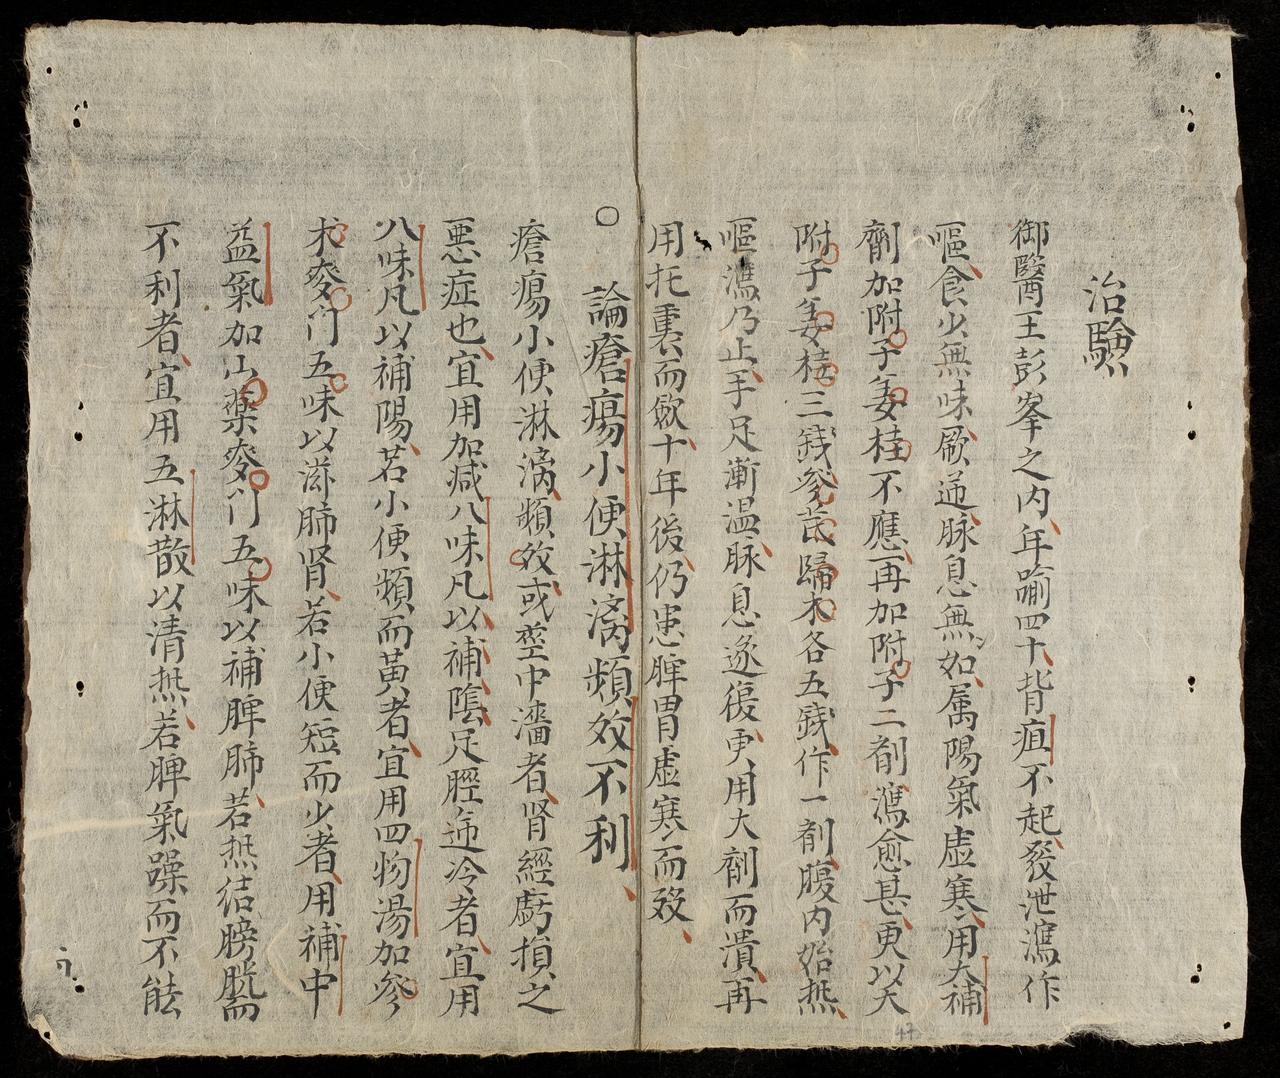 治驗
御醫王彭峯之内年踰四十背疽不起發泄瀉作
嘔食少無味厥逆脉息無如属陽氣虛寒用大補
劑加附子姜桂不應再加附子二劑瀉愈甚更以大
附子姜桂三錢參芪歸朮各五錢作一劑腹内始热
嘔瀉乃止手足漸温脉息逐復更用大劑而潰再
用托裏而歛十年後仍患脾胃虛寒而歿
○論瘡瘍小便淋漓頻数不利
瘡瘍小便淋漓頻数或莖中濇者腎經虧損之
惡症也宜用加减八味凡以補隂足脛逆冷者宜用
八味凡以補陽若小便頻而黃者宜用四物湯加參
朮麥门五味以滋肺腎若小便短而少者用補中
益氣加山藥麥门五味以補脾肺若热结膀胱而
不利者宜用五淋散以清热若脾氣躁而不能